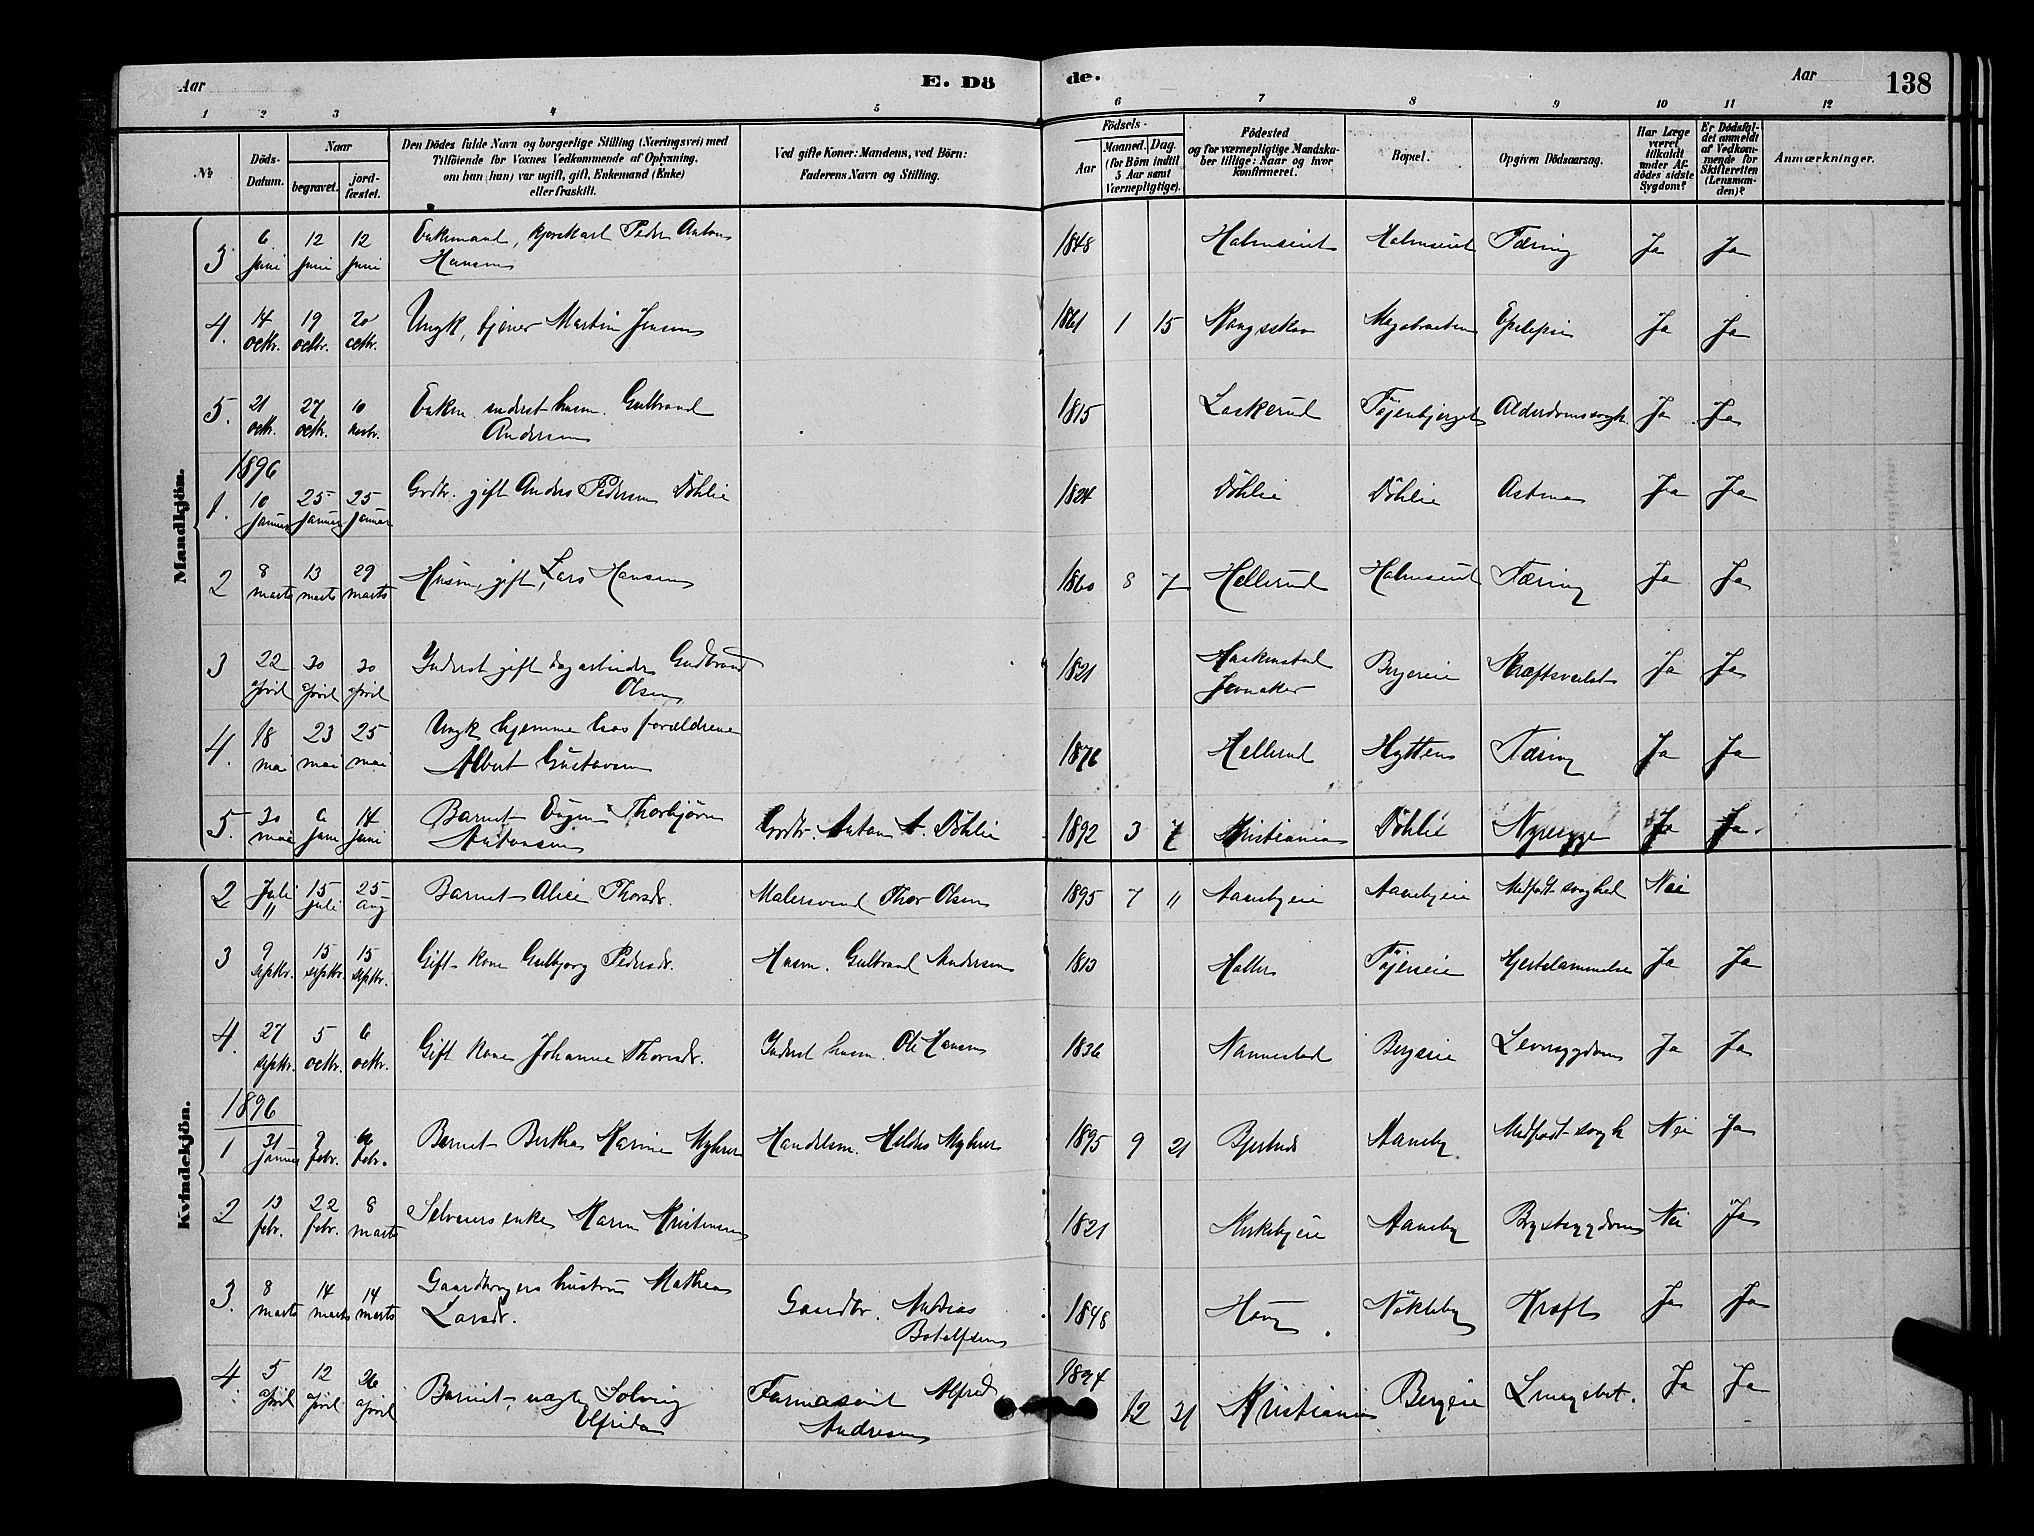 Aar
E. Dö
de.
Aar
138
1 2 3 4 5 6 7 8 9 10 11 12
№
Döds-Datum.
Naar
begravet.
jord-fæstet.
Den Dödes fulde Navn og borgerlige Stilling (Næringsvei) med
Tilföiende for Voxnes Vedkommende af Oplysning,
om han (hun) var ugift, gift, Enkemand (Enke)
eller fraskilt.
Ved gifte Koner: Mandens, ved Börn:
Faderens Navn og Stilling.
Födsels-
Aar
Maaned.
Dag.
(for Börn indtil
5 Aar samt
Værnepligtige).
Födested
og for værnepligtige Mandska-
ber tillige: Naar og hvor
konfirmeret.
Bopæl.
Opgiven Dödsaarsag.
Har Læge
været
tilkaldt
under Af-
dödes sidste
Sygdom?
Er Dödsfal-
det anmeldt
af Vedkom-
mende for
Skifteretten
(Lensman-
den)?
Anmærkninger.
Mandkjön.
3 6 juni 12 juni 12 juni Enkemand, Peder Anton Hansen 1848 Holmseiet Holmseiet Tæring Ja Ja
4. 14 octbr. 19 octbr. 20 octbr. Ungk, tjener Martin Jensen 1861 1 15 Epilepsi Ja Ja
5. 21 octbr. 27 octbr. 10 novbr. Enkm. inderst husm. Gulbrand Andersen 1815 Laskerud Töienbjerget Alderdomssvagh. Ja Ja
1896
1. 10 januar 25 januar 25 januar Grdbr. gift Anders Pedersen Döhlie 1824 Döhlie Döhlie Astma Ja Ja
2 8 marts 13 marts 29 marts Husm, gift, Lars Hansen 1860 8 7 Hellerud Holmseiet Tæring Ja Ja
3 22 april 30 april 30 april Inderst gift dagarbeider Gudbrand Olsen 1821 Jevnaker Bergereie Kræftsvulst Ja Ja
4. 18 mai 23 mai 25 mai Ungk hjemme hos forældrene Albert Gustavsen 1876 Hellerud Hytten Tæring Ja Ja
5. 30 mai 6 juni 14 juni Barnet Eugen Thorbjørn Antonsen Grdbr. Anton A. Döhlie 1892 3 7 Kristiania Döhlie Nyresyge Ja Ja
Kvindekjön.
2 Juli " 15 juli 25 aug Barnet Alice Thorsdr. Malersvend Thor Olsen 1895 7 " Aanebyeie Aanebyeie Medfödt svaghed Nei
3 9 septbr. 15 septbr. 15 septbr. Gift kone Gulbjørg Pedersdr. Husm. Gulbrand Andersen 1813 Töiereie Hjertelammelse Ja Ja
4. 27 septbr. 5 octbr. 6 octbr. Gift kone Johanne Thorsdr. Inderst husm. Ole Hansen 1836 Nannestad Bergereie Leversygdom Ja Ja
1896
1 31 januar 9 febr. febr. Barnet Bertha Karine Myhrer Handelsm. Myhrer 1895 9 21 Bjertnes Aaneby Medfödt svagh Nei Ja
2 13 febr. 22 febr. 8 marts Selveiers enke Karen Kristiansen 1821 Kirkebyeie Aaneby Brystsygdom Nei Ja
3. 8 marts 14 marts 14 marts Gaardbrugers hustru Mathea Larsdr. Gaardbr. Andreas Botolfsen 1848 Houg Nökleby Kræft Ja Ja
4. 5 april 12 april 26 april Barnet, uægte Solveig Elfrida Farmaceut Alfred Andresen 1894 12 31 Kristiania Bergereie Ja Ja